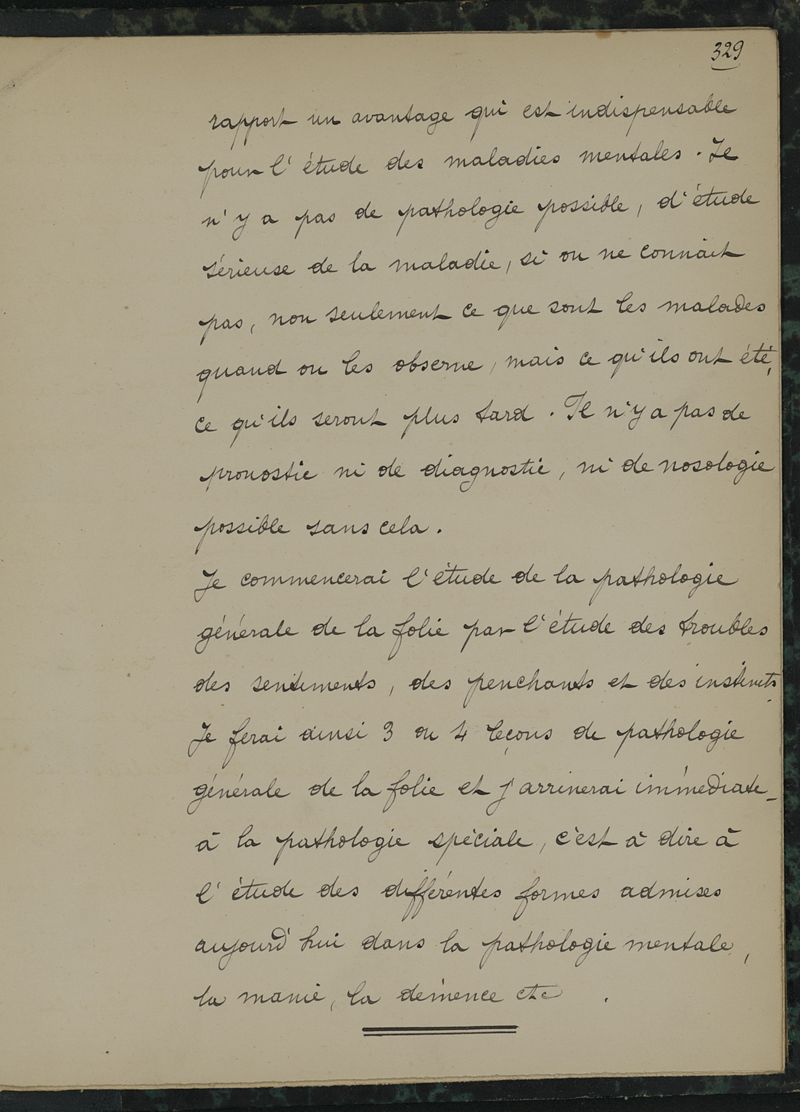 329
rapport un avantage qui est indispensable
pour l'étude des maladies mentales. Il
n'y a pas de pathologie possible, d'étude
sérieuse de la maladie, si on ne connait
pas, non seulement ce que sont les malades
quand on les observe, mais ce qu'ils ont été,
ce qu'ils seront plus tard. Il n'y a pas de
pronostic ni de diagnostic, ni de nosologie
possible sans cela.
Je commencerai l'étude de la pathologie
générale de la folie par l'étude des troubles
des sentiments, des penchants et des instincts.
Je ferai ainsi 3 ou 4 leçons de pathologie
générale de la folie et j'arriverai immédiate-
à la pathologie spéciale, c'est à dire à
l'étude des différentes formes admises
aujourd'hui dans la pathologie mentale,
la manie, la démence etc.